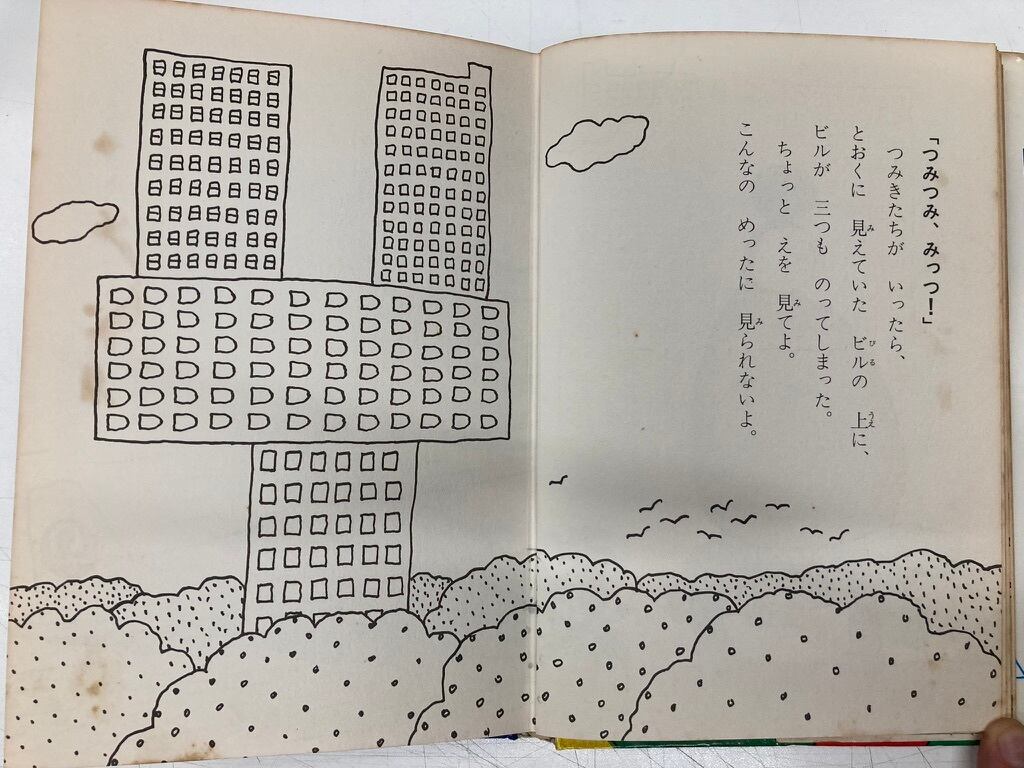 「つみつみ、みっつ！」
つみきたちが　いったら、
とおくに　見えていた　ビルの　上に、
ビルが　三つも　のってしまった。
ちょっと　えを　見てよ。
こんなの　めったに　見られないよ。